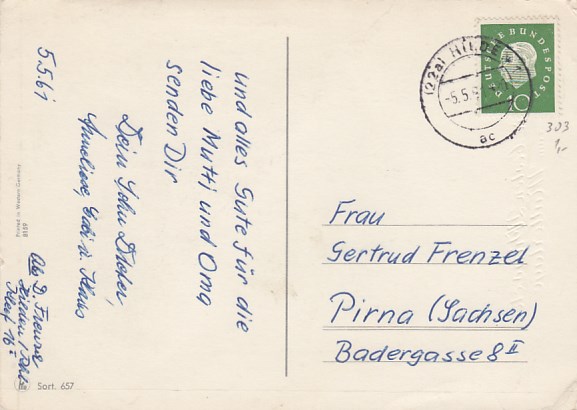 5.5.61
und alles Gute für die
liebe Mutti und Oma
senden Dir
Dein Sohn Dieter,
Anneliese, Gabi u. Klaus
Abs D. Frenzel
Hilden / Rhld.
16 I
Printed in Western Germany
8159
Sort. 657
DEUTSCHE BUNDESPOST
10
(22a) HILDEN
-5.5.6
ac
303
1,-
Frau
Gertrud Frenzel
Pirna (Sachsen)
Badergasse 8 II